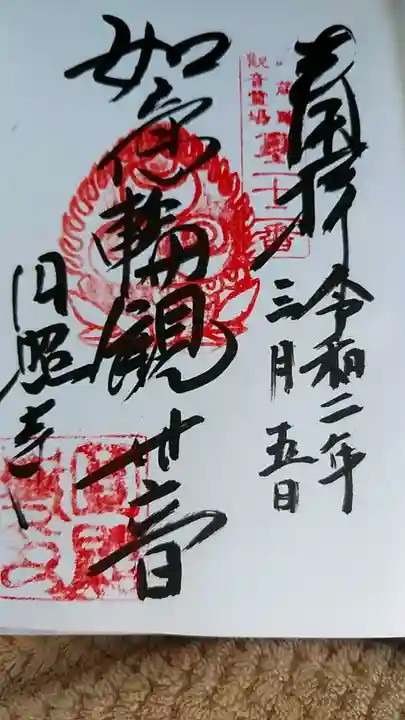 奉拝
令和二年
三月五日
観音霊場
十二番
如意輪観世音
旧照寺